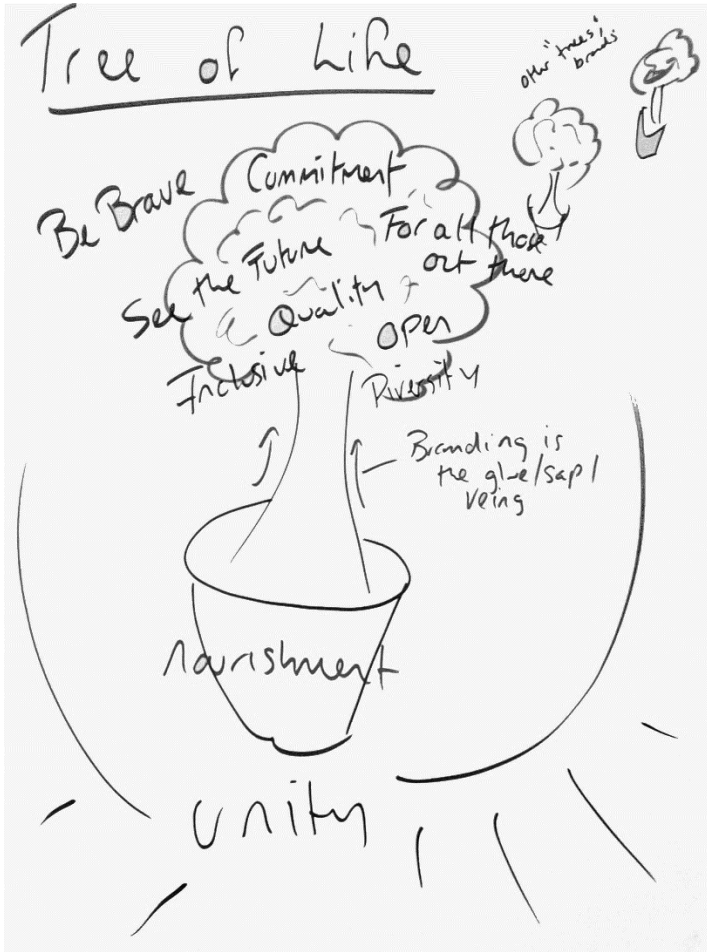 Tree of Life
other "trees"/
brands
Be Brave
Commitment
See the Future
For all those
out there
Quality
Open
Inclusive
Diversity
Branding is
the glue/sap/
veing
nourishment
unity